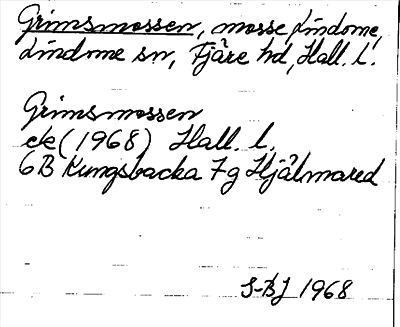 Grimsmossen, mosse, Lindome,
Lindome sn, Fjäre hd, Hall. l.
Grimsmossen
ek (1968) Hall. l.
6B Kungsbacka 7g Hjälmared
S-BJ 1968